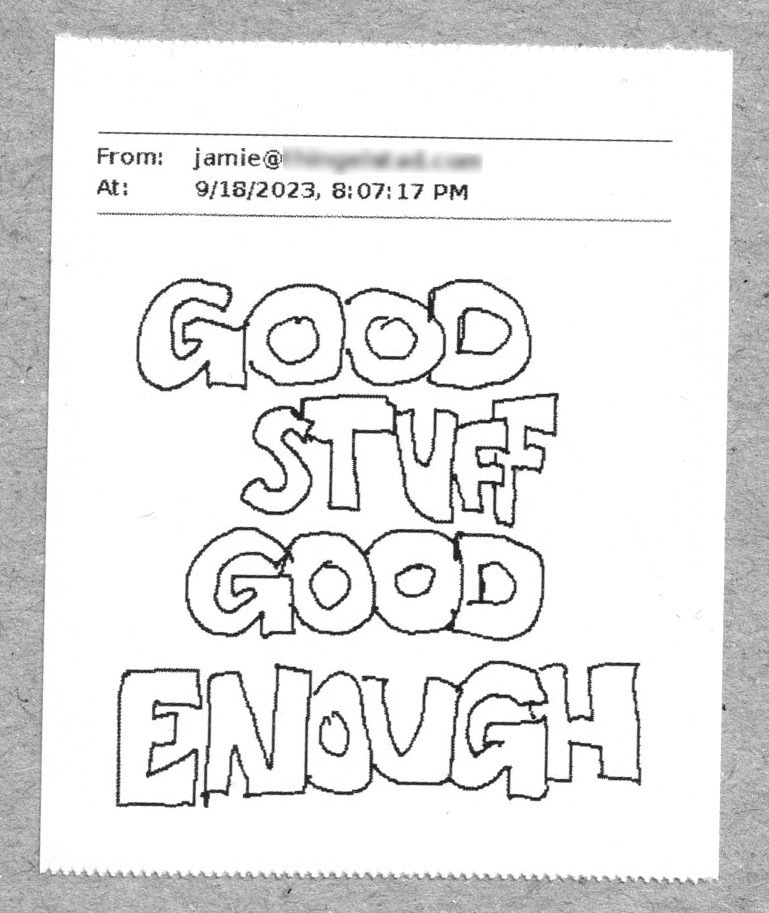 From: jamie@
At: 9/18/2023, 8:07:17 PM
GOOD
STUFF
GOOD
ENOUGH